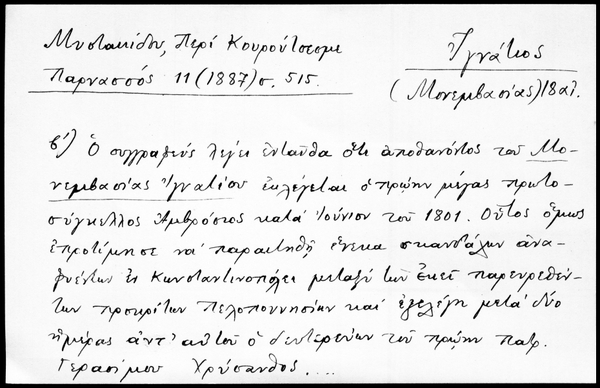 Μυστακίδου, Περί Κουρούτσεσμε
Παρνασσός 11 (1887) σ. 515.
Ἰγνάτιος
(Μονεμβασίας) 18 αἰ.
β') Ὁ συγγραφεύς λέγει ἐνταῦθα ὅτι ἀποθανόντος τοῦ Μο-
νεμβασίας Ἰγνατίου ἐκλέγεται ὁ πρώην μέγας πρωτο-
σύγκελλος Ἀμβρόσιος κατά Ἰούνιον τοῦ 1801. Οὗτος ὅμως
ἐπροτίμησε νά παραιτηθῇ ἕνεκα σκανδάλων ἀνα-
φυέντων ἐν Κωνσταντινοπόλει μεταξύ τῶν ἐκεῖ παρευρεθέν-
των προκρίτων Πελοποννησίων καί ἐξελέγη μετά δύο
ἡμέρας ἀντ' αὐτοῦ ὁ δευτερεύων τοῦ πρώην πατρ.
Γερασίμου Χρύσανθος....